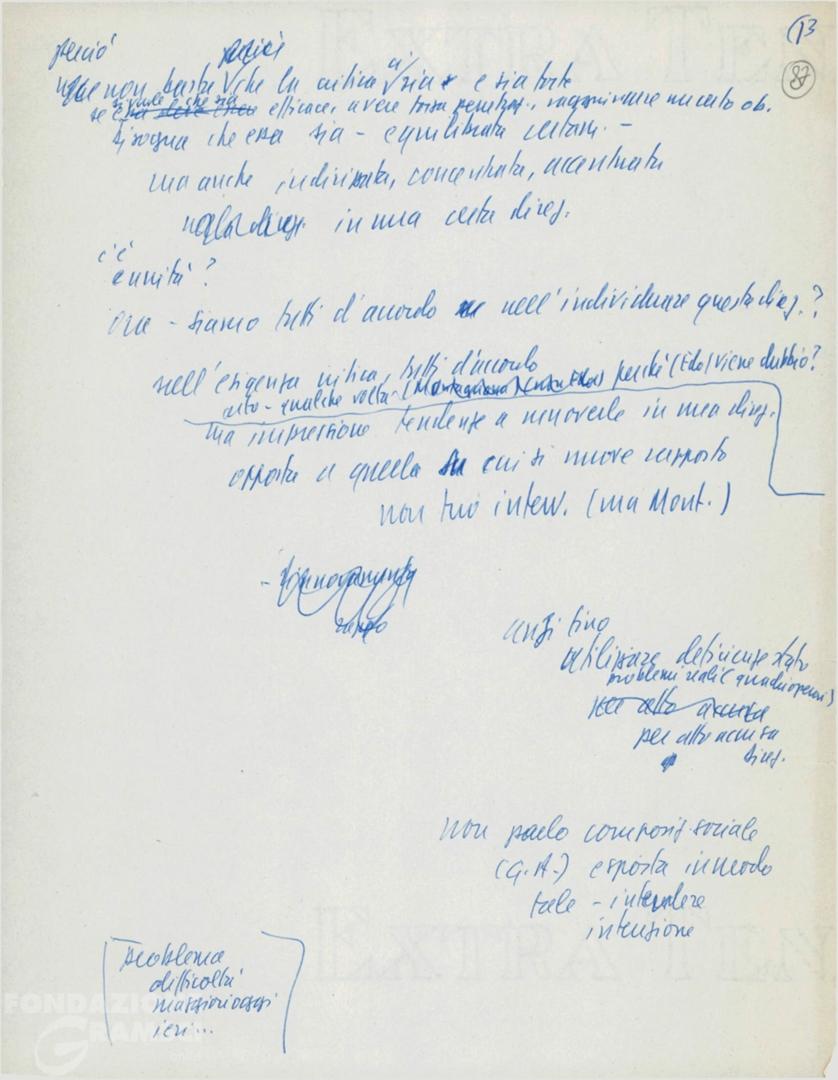 13
87
perciò
non basta che la critica ci sia e sia forte
se si vuole che sia efficace, avere forza penetraz., raggiungere un certo ob.
bisogna che essa sia - equilibrata certam. -
ma anche indirizzata, concentrata, accentuata
in una certa direz.
c'è
unità?
Ora - siamo tutti d'accordo nell'individuare questa direz.?
nell'esigenza critica, tutti d'accordo
perché (Edo) viene dubbio?
ma impressione tendenze a muoverle in una direz.
opposta a quella su cui si muove rapporto
non tuo interv. (ma Mont.)
anzi fino
utilizzare deficienze stato
problemi reali (quadri operai)
per atto accusa
per atto accusa
direz.
non parlo composiz. sociale
(G.A.) esposta in modo
tale - intendere
intenzione
problema
difficoltà
maggiori oggi
ieri...
FONDAZIONE
GRAMSCI